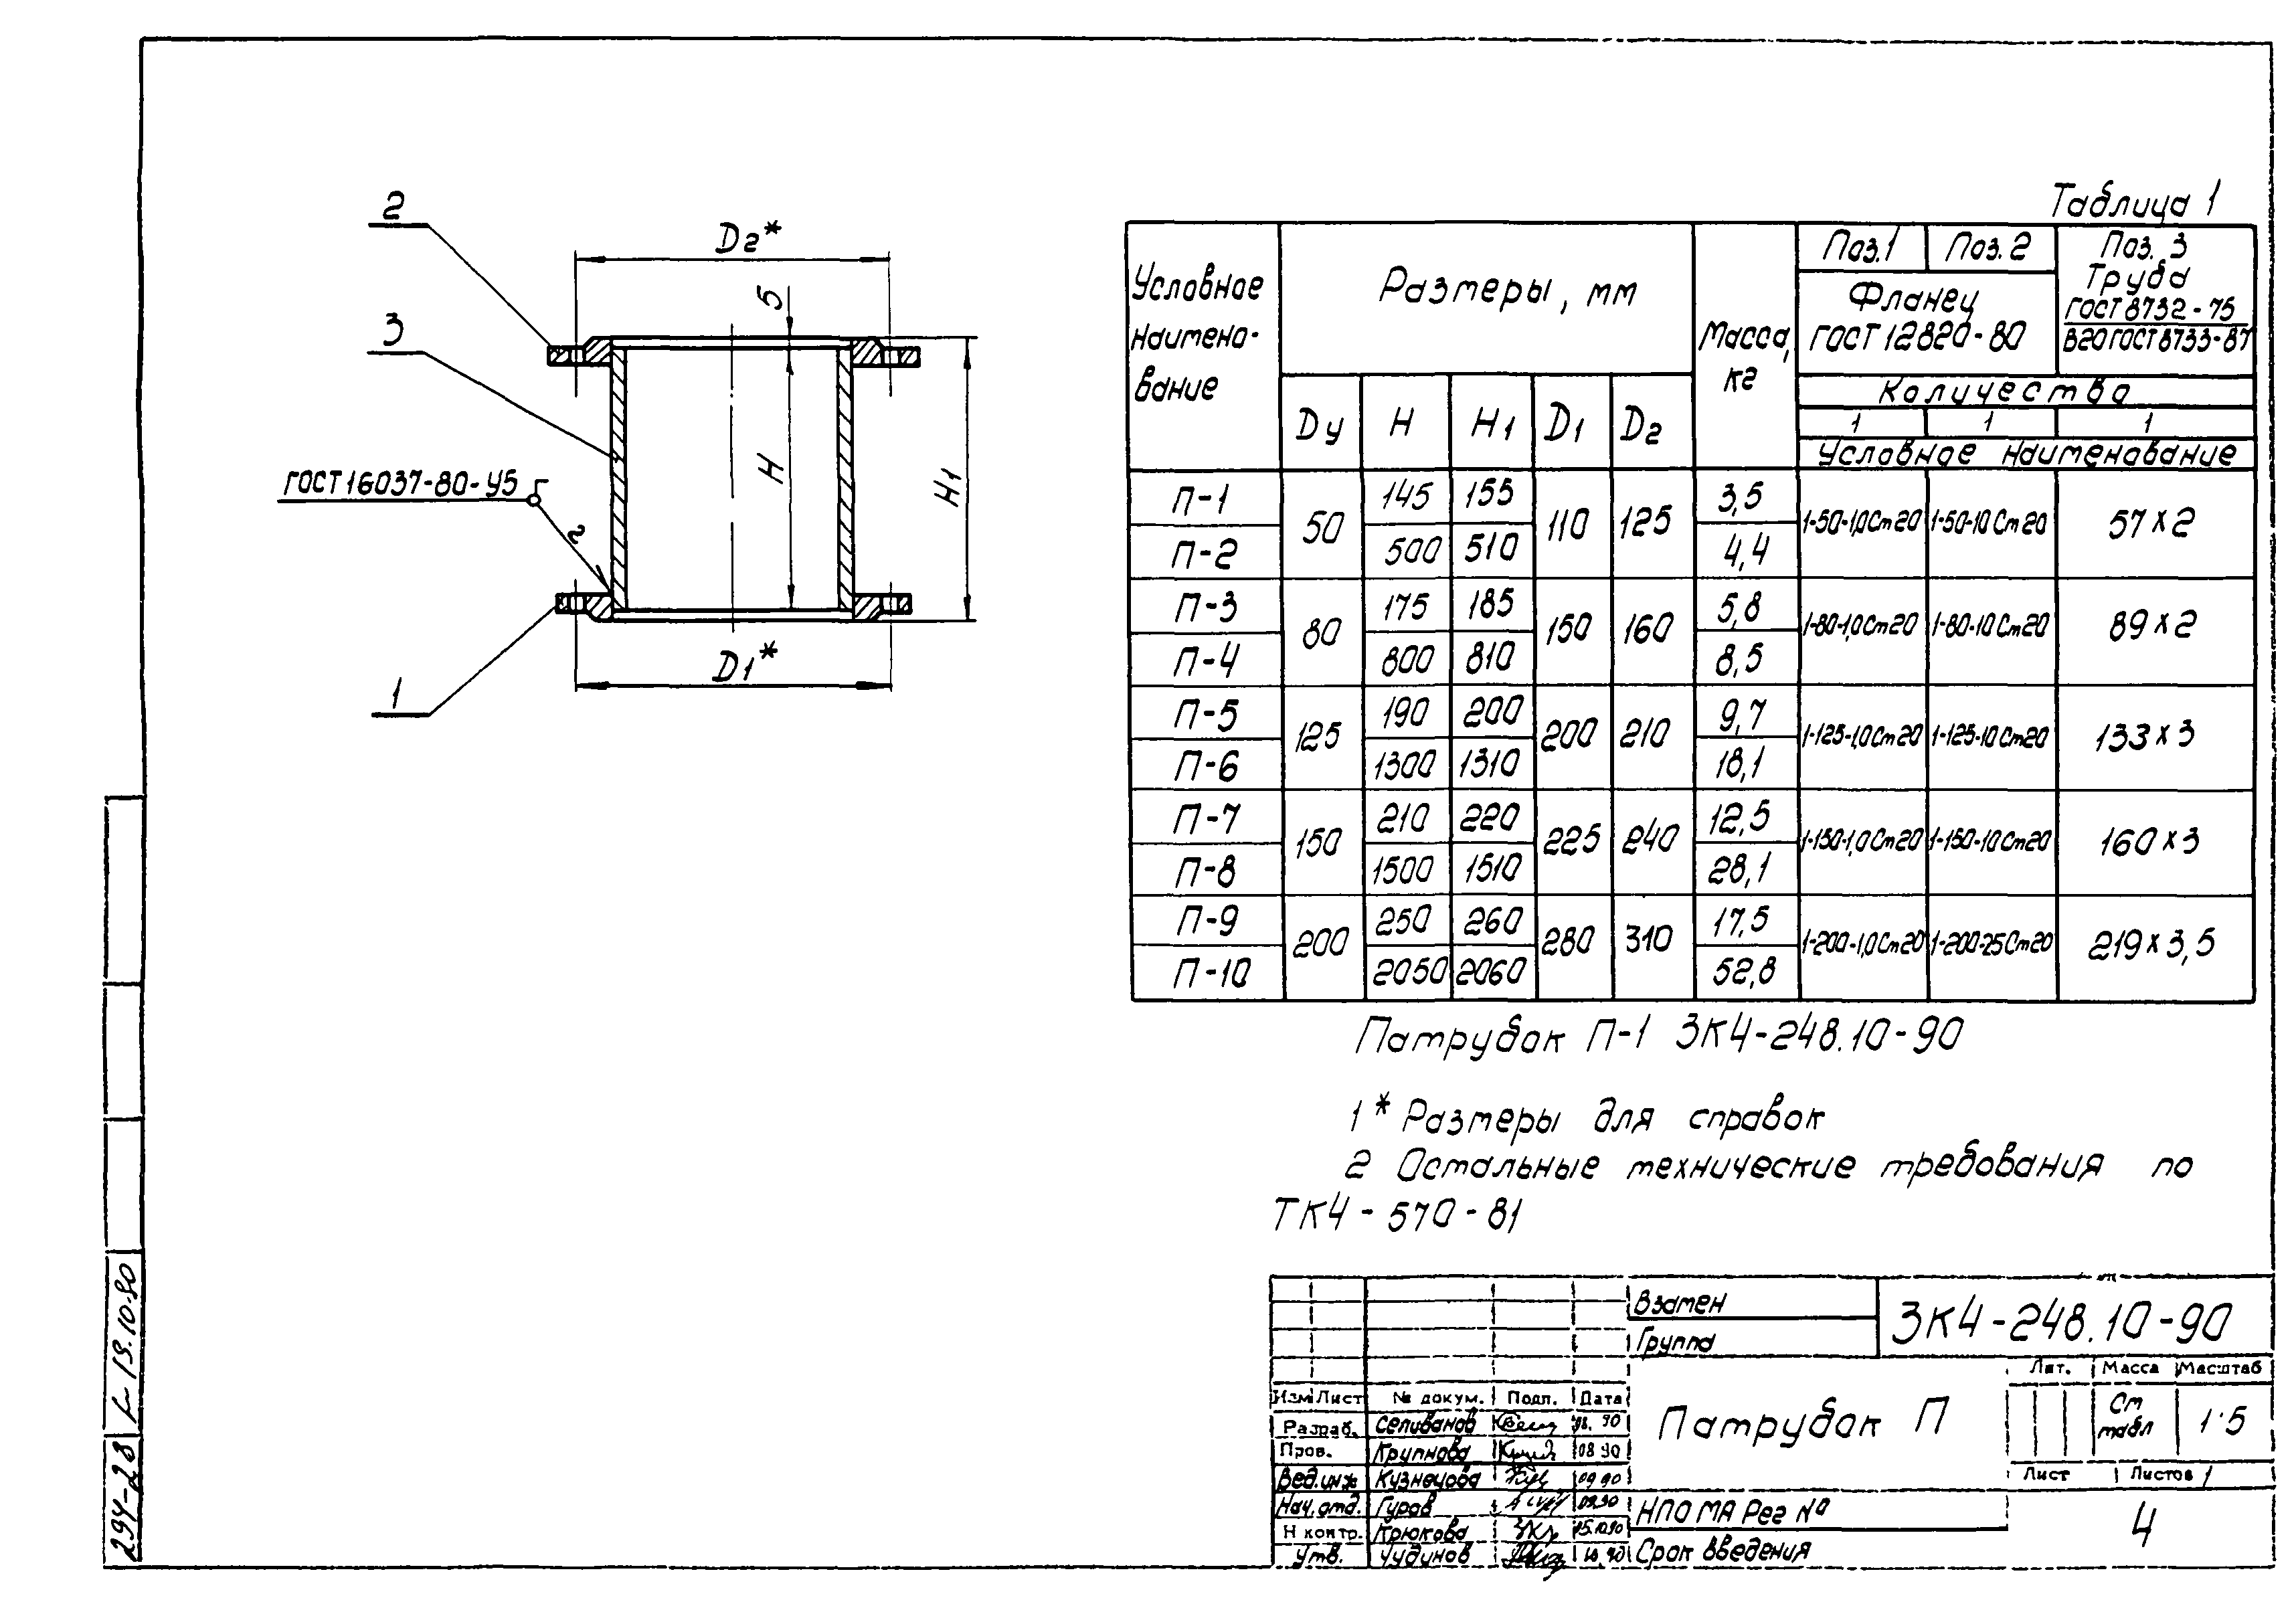 2
D2*
3
5
ГОСТ 16037-80-У5
2
H
H1
D1*
1
Таблица 1
Условное наимено-вание
Размеры, мм
Масса, кг
Поз.1 Поз.2
Фланец
ГОСТ 12820-80
Поз. 3
Труба
ГОСТ 8732-75
В20 ГОСТ 8733-87
Количество
1 1 1
Dу H H1 D1 D2
Условное наименование
П-1 50 145 155 110 125 3,5 1-50-1,0 Ст 20 1-50-10 Ст 20 57 х 2
П-2 500 510 4,4
П-3 80 175 185 150 160 5,8 1-80-1,0 Ст 20 1-80-10 Ст 20 89 х 2
П-4 800 810 8,5
П-5 125 190 200 200 210 9,7 1-125-1,0 Ст 20 1-125-10 Ст 20 133 х 3
П-6 1300 1310 18,1
П-7 150 210 220 225 240 12,5 1-150-1,0 Ст 20 1-150-10 Ст 20 160 х 3
П-8 1500 1510 28,1
П-9 200 250 260 280 310 17,5 1-200-1,0 Ст 20 1-200-25 Ст 20 219 х 3,5
П-10 2050 2060 52,8
Патрубок П-1 ЗК4-248.10-90
1 * Размеры для справок
2 Остальные технические требования по
ТК4-570-81
Взамен
Группа
ЗК4-248.10-90
Изм Лист № докум. Подп. Дата
Разраб. Селиванов 08. 90
Пров. Крупнова 08 90
Вед.инж Кузнецова 09 90
Нач. отд. Гуров 09.90
Н контр. Крюкова 15.10.90
Утв. Чудинов 10.90
Патрубок П
Лит. Масса Масштаб
См табл 1:5
Лист Листов 1
НПО МА Рег №
Срок введения
4
294-28 19.10.90